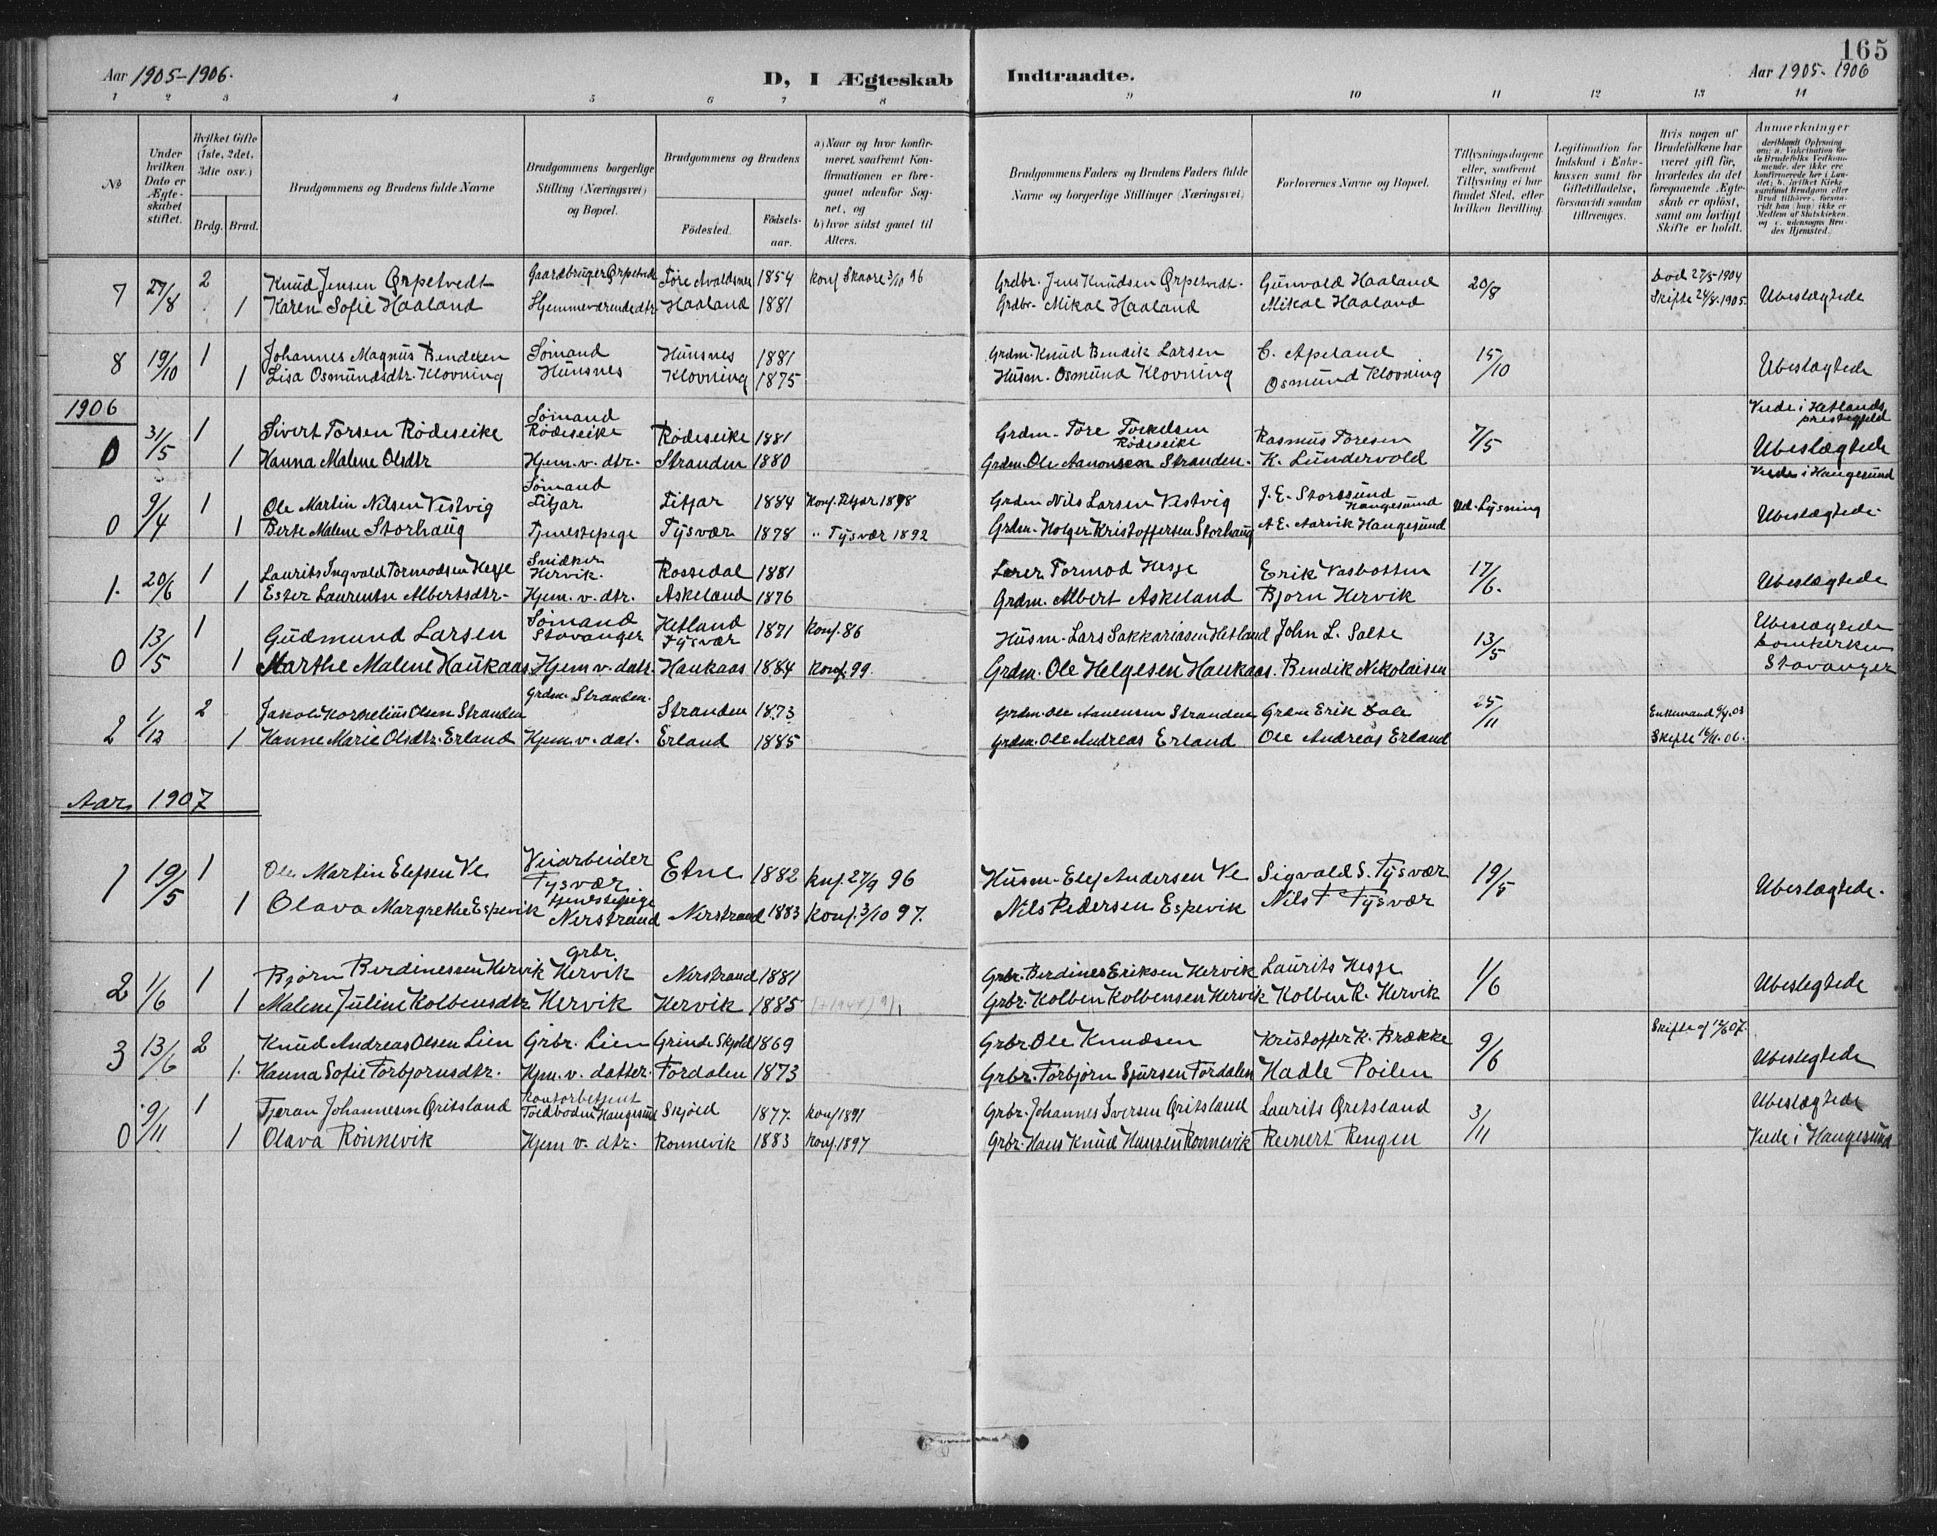 165
Aar 1905-1906. D, I Ægteskab Indtraadte. Aar 1905-1906
1 2 3 4 5 6 7 8 9 10 11 12 13 14
No
Under hvilken Dato er Ægteskabet stiftet.
Hvilket Gifte (1ste, 2det, 3die osv.)
Brdg. Brud.
Brudgommens og Brudens fulde Navne
Brudgommens borgerlige Stilling (Næringsvei) og Bopæl.
Brudgommens og Brudens
Fødested. Fødselsaar.
a) Naar og hvor konfirmeret, saafremt Konfirmationen er foregaaet udenfor Sognet, og
b) hvor sidst gaaet til Alters.
Brudgommens Faders og Brudens Faders fulde Navne og borgerlige Stillinger (Næringsvei)
Forlovernes Navne og Bopæl.
Tillysningsdagene eller, saafremt Tillysning ei har fundet Sted, efter hvilken Bevilling.
Legitimation for Indskud i Enkekassen samt for Giftetilladelse, forsaavidt saadan tiltrænges.
Hvis nogen af Brudefolkene har været gift før, hvorledes da det foregaaende Ægteskab er opløst, samt om lovligt Skifte er holdt.
Anmerkninger
7 27/8 2 Knud Jensen Ørpetvedt Gaardbruger Ørpetvedt Føre Avaldsnes 1854 konf Skaare 3/10 96 Grdbr. Jens Knudsen Ørpetvedt. Gunvald Haaland 20/8 Død 27/5 1904
1 Karen Sofie Haaland Hjemmeværende dtr. Haaland 1881 Grdbr. Mikal Haaland Mikal Haaland Skifte 24/8 1905. Ubeslægtede
8 19/10 1 Johannes Magnus Bendiksen Sømand Hunsnes 1881 Grdm. Knud Bendik Larsen C. Apeland 15/10
1 Lisa Osmundsdtr. Klovning Hunsnes Klovning 1875 Husm. Osmund Klovning Osmund Klovning Ubeslægtede
1906
0 31/5 1 Sivert Torsen Rödeseike Sømand Rödeseike Rödeseike 1881 Grdm. Tore Torkelsen Rödeseike Rasmus Toresen 7/5 Viede i Hetlands prestegjeld
1 Hanna Malene Olsdtr Hjem. v. dtr. Stranden 1880 Grdm. Ole Aanonsen Stranden. K. Lundervold Ubeslægtede
0 9/4 1 Ole Martin Nilsen Vestvig Sømand Fitjar Fitjar 1884 Konf. Fitjar 1898 Grdm Nils Larsen Vestvig J. E. Storesund Haugesund Ved Lysning Viede i Haugesund
1 Berte Malene Storhaug Tjenestepige Tysvær 1878 " Tysvær 1892 Grdm. Holger Kristoffersen Storhaug A E. Aarvik Haugesund Ubeslægtede.
1. 20/6 1 Laurits Ingvald Tormodsen Hesje Snidker Hervik. Rossedal 1881 Lærer Tormod Hesje Erik Vasbotten 17/6.
1 Ester Laurentse Albertsdtr. Hjem. v. dtr. Askeland 1876 Grdm. Albert Askeland Bjorn Hervik Ubeslægtede
0 13/5 1 Gudmund Larsen Sømand Stavanger Hetland Tysvær 1871 Konf. 86 Husm. Lars Sakkariasen Hetland John L. Salte 13/5 Ubeslægtede Domkirken
1 Marthe Malene Haukaas Hjem v. datr. Haukaas 1884 Konf. 99. Grdm. Ole Helgesen Haukaas. Bendik Nikolaisen Stavanger
2 1/12 2 Jakob Kornelius Olsen Stranden Grdm. Stranden. Stranden 1873 Grdm. Ole Aanensen Stranden Grdm Erik Dale 25/11 Enkemand 9/4. 03
1 Hanne Marie Olsdtr. Erland Hjem. v. dat. Erland 1885 Grdm. Ole Andreas Erland Ole Andreas Erland Skifte 16/11. 06.
Aar 1907
1 19/5 1 Ole Martin Elefsen Ve Veiarbeider Tysvær. Etne 1882 Knf. 27/9 96 Husm. Elef Andersen Ve Sigvald S. Tysvær 19/5
1 Olava Margrethe Espevik tjenestepige Nerstrand Nerstrand 1883 Konf. 3/10 97. Nils Pedersen Espevik Nils T Tysvær Ubeslægtede.
2 1/6 1 Bjørn Berdinessen Hervik grbr. Hervik Nerstrand 1881 Grbr. Berdines Eriksen Hervik Laurits Hesje 1/6
1 Malene Juline Kolbensdtr. Hervik Hervik 1885 Grbr. Kolben Kolbensen Hervik Kolben K. Hervik Ubeslegtede
3 13/6 2 Knud Andreas Olsen Lien Grbr. Lien Grinde Skjold 1869 Grbr Ole Knudsen Kristoffer K. Brække 9/6 Skifte af 12/6 07.
1. Hanna Sofie Torbjornsdtr. Hjm. v. datter. Fordalen 1873 Grbr. Torbjørn Sjursen Fordalen Kadle Poilen Ubeslegtede
0 9/11 1 Tjeran Johannesen Qritsland Kontorbetjent Toldboden Haugesund Skjold 1877. Konf 1891 Grbr. Johannes Iversen Qritsland Laurits Qretsland 3/11 Ubeslægtede
1 Olava Rönnevik Hjem v. dtr. Ronnevik 1883 Konf. 1897 Grbr. Hans Knud Hansen Ronnevik Reinert Rengen Viede i Haugesund